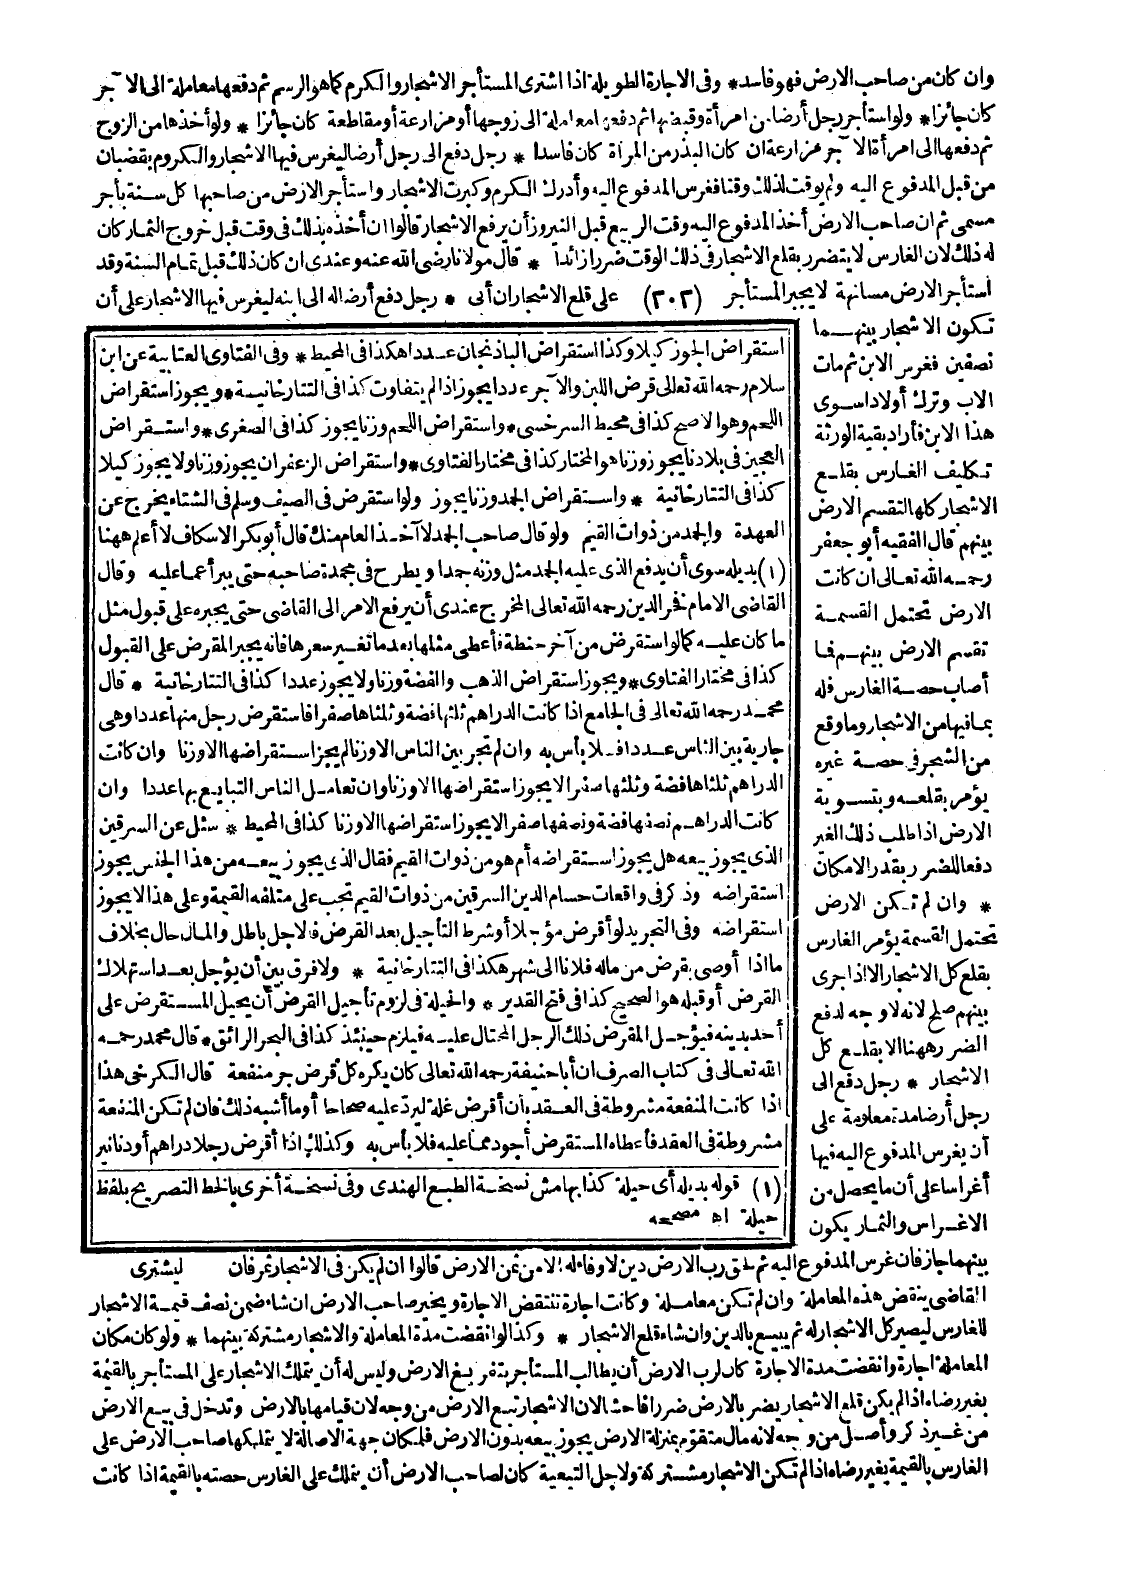 وان كان من صاحب الارض فهو فاسد * وفى الاجارة الطويلة اذا اشترى المستأجر الاشجار والكرم كما هو الرسم ثم دفعها معاملة الى الآجر
كان جائزا * ولو استأجر رجل أرضا من امرأة وقبضها ثم دفعها معاملة الى زوجها أو مزارعة أو مقاطعة كان جائزا * ولو أخذها من الزوج
ثم دفعها الى امرأة الآجر مزارعة ان كان البذر من المرأة كان فاسدا * رجل دفع الى رجل أرضا ليغرس فيها الاشجار والكروم بقضبان
من قبل المدفوع اليه ولم يوقت لذلك وقتا فغرس المدفوع اليه وأدرك الكرم وكبرت الاشجار واستأجر الارض من صاحبها كل سنة بأجر
مسمى ثم ان صاحب الارض أخذ المدفوع اليه وقت الربيع قبل النيروز أن يرفع الاشجار قالوا ان أخذه بذلك فى وقت قبل خروج الثمار كان
له ذلك لان الغارس لا يتضرر بقلع الاشجار فى ذلك الوقت ضررا زائدا * قال مولانا رضى الله عنه وعندى ان كان ذلك قبل تمام السنة وقد
استأجر الارض مسانهة لا يجبر المستأجر (٣٠٢) على قلع الاشجار ان أبى * رجل دفع أرضا له الى ابنه ليغرس فيها الاشجار على أن
تكون الاشجار بينهما
نصفين فغرس الابن ثم مات
الاب وترك أولادا سوى
هذا الابن فأراد بقية الورثة
تكليف الغارس بقلع
الاشجار كلها لتقسم الارض
بينهم قال الفقيه أبو جعفر
رحمه الله تعالى ان كانت
الارض تحتمل القسمة
تقسم الارض بينهم فما
أصاب حصة الغارس فله
بما فيها من الاشجار وما وقع
من الشجر فى حصة غيره
يؤمر بقلعه وبتسوية
الارض اذا طلب ذلك الغير
دفعا للضرر بقدر الامكان
* وان لم تكن الارض
تحتمل القسمة يؤمر الغارس
بقلع كل الاشجار الا اذا جرى
بينهم صلح لانه لا وجه لدفع
الضرر ههنا الا بقلع كل
الاشجار * رجل دفع الى
رجل أرضا مدة معلومة على
أن يغرس المدفوع اليه فيها
أغراسا على أن ما يحصل من
الاغراس والثمار يكون
استقراض الجوز كيلا وكذا استقراض الباذنجان عددا هكذا فى المحيط * وفى الفتاوى العتابية عن ابن
سلام رحمه الله تعالى قرض اللبن والآجر عددا يجوز اذا لم يتفاوت كذا فى التتارخانية * ويجوز استقراض
اللحم وهو الاصح كذا فى محيط السرخسى * واستقراض اللحم وزنا يجوز كذا فى الصغرى * واستقراض
العجين فى بلادنا يجوز وزنا هو المختار كذا فى مختار الفتاوى * واستقراض الزعفران يجوز وزنا ولا يجوز كيلا
كذا فى التتارخانية * واستقراض الجمد وزنا يجوز ولو استقرض فى الصيف وسلم فى الشتاء يخرج عن
العهدة والجمد من ذوات القيم ولو قال صاحب الجمد لا آخذ العام منك قال أبو بكر الاسكاف لا أعلم ههنا
(١) بديله سوى أن يدفع الذى عليه الجمد مثل وزنه جمدا ويطرح فى مجمدة صاحبه حتى يبرأ عما عليه وقال
القاضى الامام فخر الدين رحمه الله تعالى المخرج عندى أن يرفع الامر الى القاضى حتى يجبره على قبول مثل
ما كان عليه كما لو استقرض من آخر حنطة فأعطى مثلها بعد ما تغير سعرها فانه يجبر المقرض على القبول
كذا فى مختار الفتاوى * ويجوز استقراض الذهب والفضة وزنا ولا يجوز عددا كذا فى التتارخانية * قال
محمد رحمه الله تعالى فى الجامع اذا كانت الدراهم ثلثها فضة وثلثاها صفرا فاستقرض رجل منها عددا وهى
جارية بين الناس عددا فلا بأس به وان لم تجر بين الناس الا وزنا لم يجز استقراضها الا وزنا وان كانت
الدراهم ثلثاها فضة وثلثها صفرا لا يجوز استقراضها الا وزنا وان تعامل الناس التبايع بها عددا وان
كانت الدراهم نصفها فضة ونصفها صفر لا يجوز استقراضها الا وزنا كذا فى المحيط * سئل عن السرقين
الذى يجوز بيعه هل يجوز استقراضه أم هو من ذوات القيم فقال الذى يجوز بيعه من هذا الجنس يجوز
استقراضه وذكر فى واقعات حسام الدين السرقين من ذوات القيم تجب على متلفه القيمة وعلى هذا لا يجوز
استقراضه وفى التجريد لو أقرض مؤجلا أو شرط التأجيل بعد القرض فالاجل باطل والمال حال بخلاف
ما اذا أوصى بقرض من ماله فلانا الى شهر هكذا فى التتارخانية * ولا فرق بين أن يؤجل بعد استهلاك
القرض أو قبله هو الصحيح كذا فى فتح القدير * والحيلة فى لزوم تأجيل القرض أن يحيل المستقرض على
أحد بدينه فيؤجل المقرض ذلك الرجل المحتال عليه فيلزم حينئذ كذا فى البحر الرائق * قال محمد رحمه
الله تعالى فى كتاب الصرف ان أبا حنيفة رحمه الله تعالى كان يكره كل قرض جر منفعة قال الكرخى هذا
اذا كانت المنفعة مشروطة فى العقد بأن أقرض غلة ليرد عليه صحاحا أو ما أشبه ذلك فان لم تكن المنفعة
مشروطة فى العقد فأعطاه المستقرض أجود مما عليه فلا بأس به وكذلك اذا أقرض رجلا دراهم أو دنانير
(١) قوله بديله أى حيلة كذا بهامش نسخة الطبع الهندى وفى نسخة أخرى بالخط التصريح بلفظ
حيلة اه مصححه
بينهما جاز فان غرس المدفوع اليه ثم لحق رب الارض دين لا وفاء له الا من ثمن الارض قالوا ان لم يكن فى الاشجار ثمر فان ليشترى
القاضى ينقض هذه المعاملة وان لم تكن معاملة وكانت اجارة تنتقض الاجارة ويخير صاحب الارض ان شاء ضمن نصف قيمة الاشجار
للغارس ليصير كل الاشجار له ثم يبيع بالدين وان شاء قلع الاشجار * وكذا لو انقضت مدة المعاملة والاشجار مشتركة بينهما * ولو كان مكان
المعاملة اجارة وانقضت مدة الاجارة كان لرب الارض أن يطالب المستأجر بتفريغ الارض وليس له أن يتملك الاشجار على المستأجر بالقيمة
بغير رضاه اذا لم يكن قلع الاشجار يضر بالارض ضررا فاحشا لان الاشجار تبع الارض من وجه لان قيامها بالارض وتدخل فى بيع الارض
من غير ذكر وأصل من وجه لانه مال متقوم بمنزلة الارض يجوز بيعه بدون الارض فلمكان جهة الاصالة لا يتملكها صاحب الارض على
الغارس بالقيمة بغير رضاه اذا لم تكن الاشجار مشتركة ولاجل التبعية كان لصاحب الارض أن يتملك على الغارس حصته بالقيمة اذا كانت